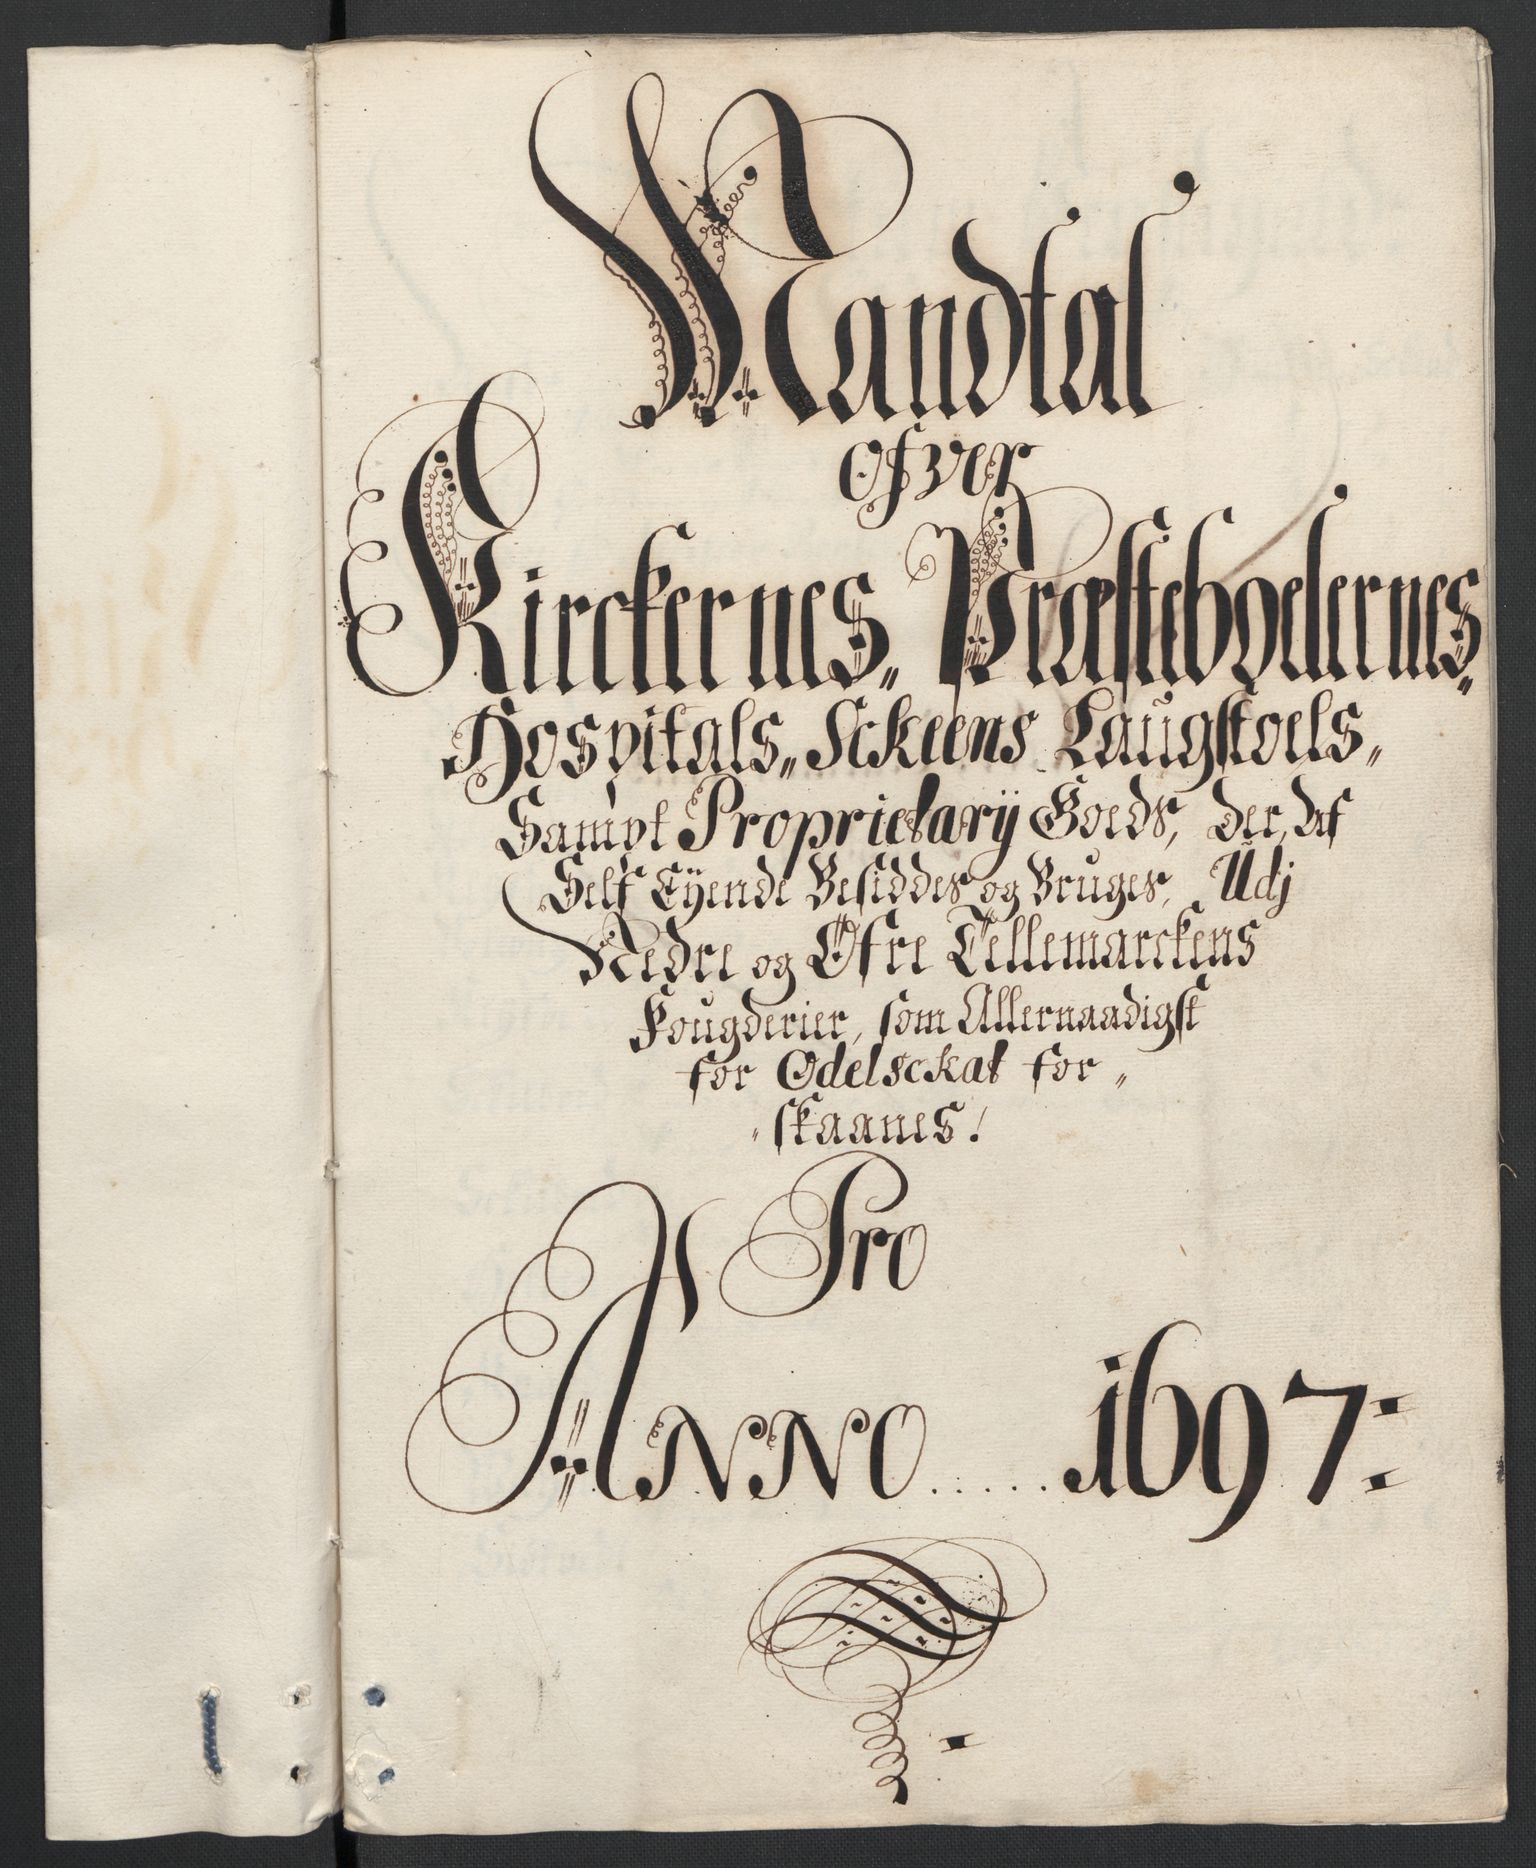 Mandtal
ofver
Kirckernes„ Præsteboelernes„
Hospitals„ Sckeens Laugstoels„
Sampt Proprietarÿ Goeds, der, Af
Self Eÿende Besiddes og Bruges, Udj
Nedre og Øfre Tellemarckens
Fougderier, som Allernaadigst
for Odelsckat for„
„skaanes!
Pro
ANNO ..... 1697: